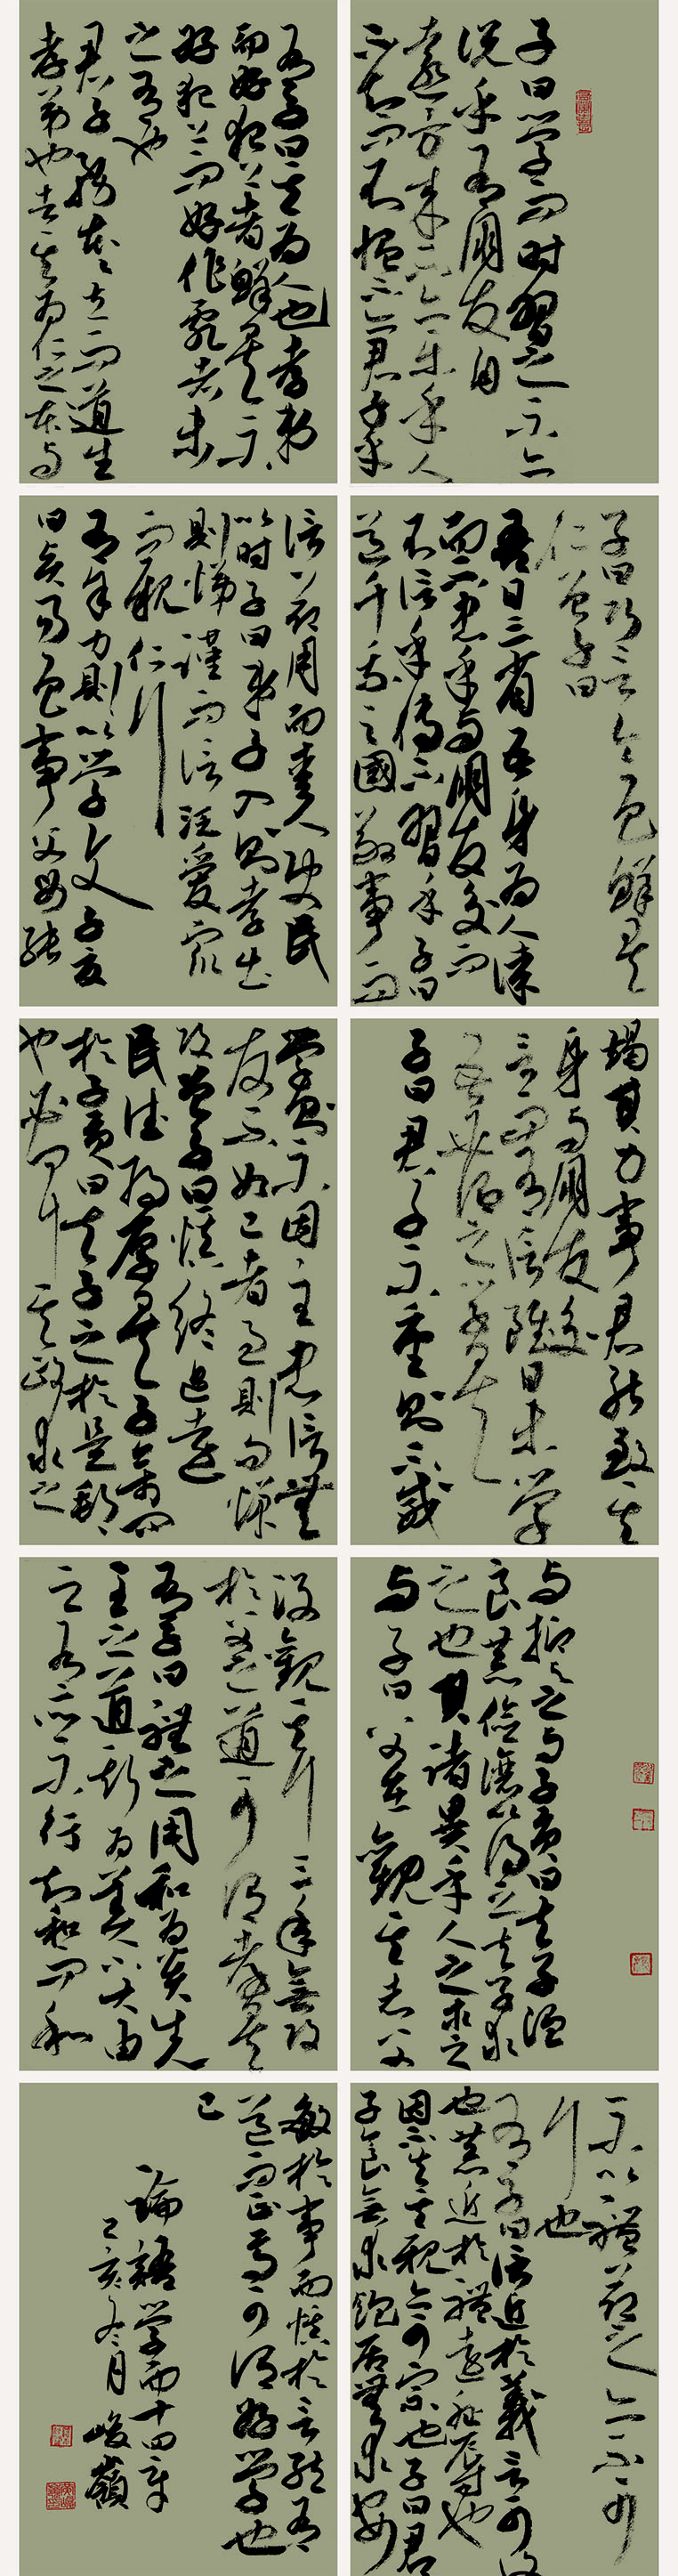 子曰學而時習之不亦
說乎有朋友自
遠方來不亦樂乎人
不知而不愠不亦君子乎
有子曰其為人也孝弟
而好犯上者鮮矣不
好犯上而好作亂者未
之有也
君子務本本立而道生
孝弟也者其為仁之本與
子曰巧言令色鮮矣
仁曾子曰
吾日三省吾身為人謀
而不忠乎與朋友交而
不信乎傳不習乎子曰
道千乘之國敬事而
信節用而愛人使民
以時子曰弟子入則孝出
則悌謹而信汎愛眾
而親仁行
有餘力則以學文子夏
曰賢賢易色事父母能
竭其力事君能致其
身與朋友交
言而有信雖曰未學
吾必謂之學矣
子曰君子不重則不威
學則不固主忠信無
友不如己者過則勿憚
改曾子曰慎終追遠
民德歸厚矣子禽問
於子貢曰夫子之於是邦
也必聞其政求之
與抑與之與子貢曰夫子溫
良恭儉讓以得之夫子求
之也其諸異乎人之求之
與子曰父在觀其志父
沒觀其行三年無改
於父之道可謂孝矣
有子曰禮之用和為貴先
王之道斯為美小大由
之有所不行知和而和
不以禮節之亦不可
行也
有子曰信近於義言可復
也恭近於禮遠恥辱也
因不失其親亦可宗也子曰君
子食無求飽居無求安
敏於事而慎於言就有
道而正焉可謂好學也
已
論語學而十四章
己亥冬月峻嶺